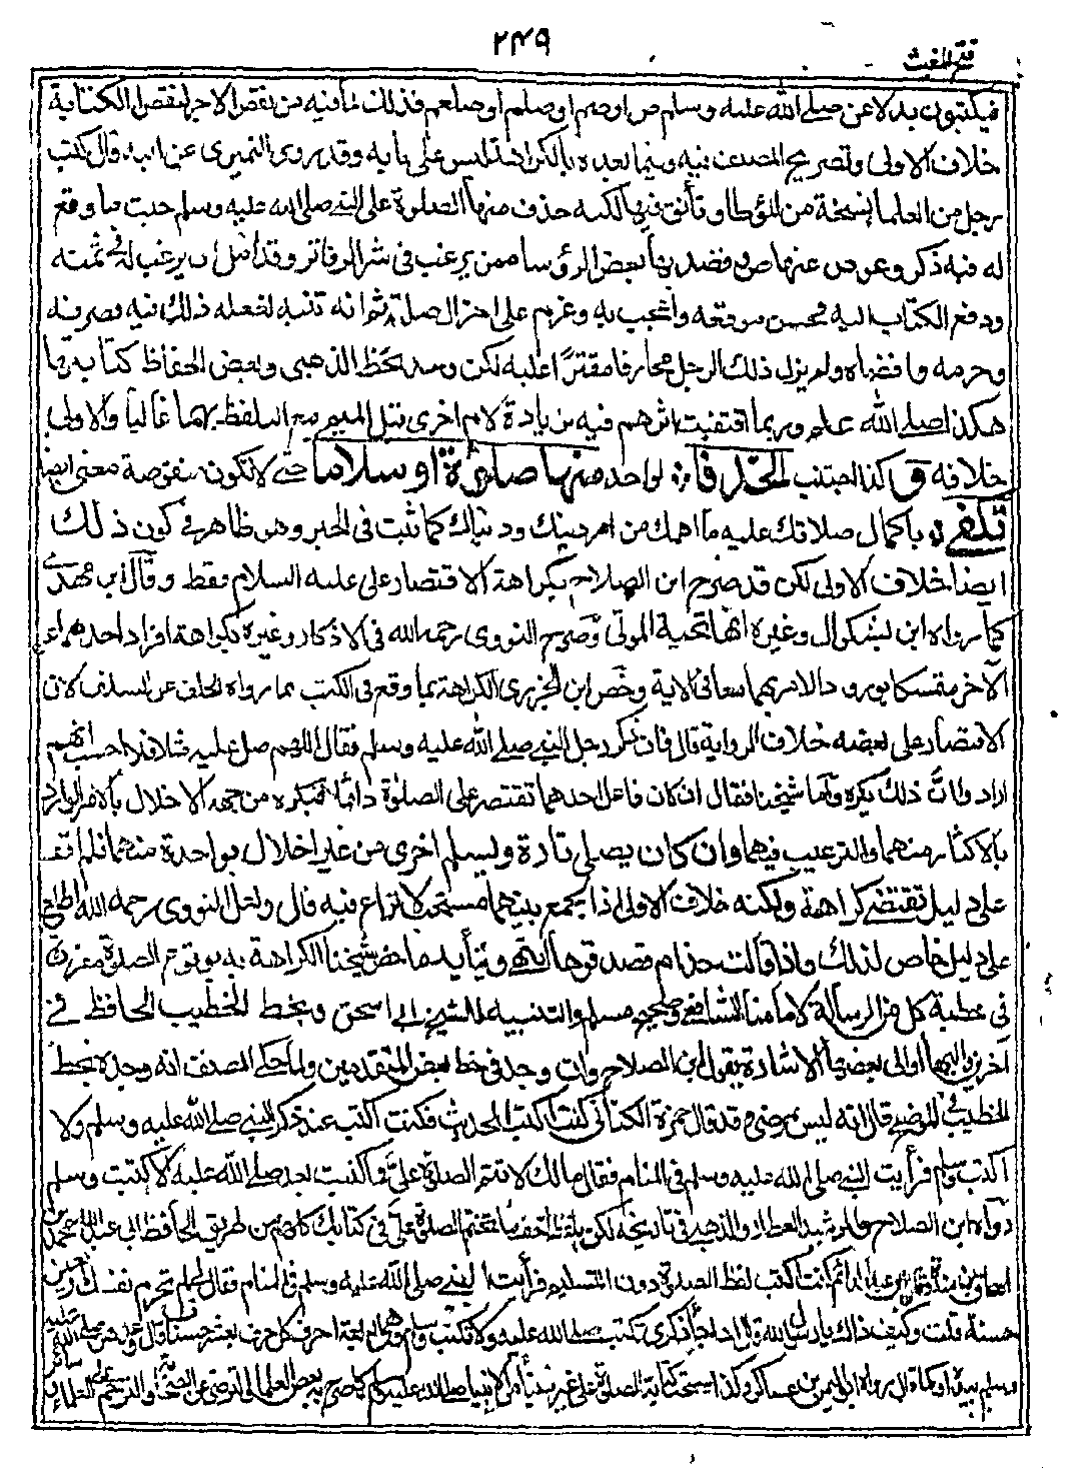 ٢٤٩
فتح المغيث
فيكتبون بدلا عن صلے الله عليه وسلم ص او صم او صلم او صلعم فذلك لما فيه من نقص الاجر لنقص الكتابة
خلاف الاولى وتصريح المصنف فيه وفيما بعده بالكراهة ليس على بابه وقد روى النميرى عن ابيه قال كتب
رجل من العلماء نسخة من المؤطا وتأنق فيها لكنه حذف منها الصلوة على النبے صلى الله عليه وسلم حيث ما وقع
له فيه ذكر وعوض عنها ص وقصد بها بعض الرؤساء ممن يرغب فى شراء الدفاتر وقد امل ان يرغب له فى ثمنه
ودفع الكتاب اليه فحسن موقعه واعجب به وعزم على اجزال صلته ثم انه تنبه لفعله ذلك فيه فصرفه
وحرمه واقصاه ولم يزل ذلك الرجل محارفا مقترا عليه لكن وجد بخط الذهبى وبعض الحفاظ كتابتها
هكذا صلے الله علم وربما اقتفيت اثرهم فيه بزيادة لام اخرى قبل الميم مع التلفظ بهما غالبا والاولى
خلافه و كذا اجتنب الحذف لواحد منها صلوة او سلاما حتے لا تكون منقوصة معنى ايضا
تكفى باكمال صلاتك عليه ما اهمك من امر دينك ودنياك كما ثبت فى الخبر وهو ظاهر فى كون ذلك
ايضا خلاف الاولى لكن قد صرح ابن الصلاح بكراهة الاقتصار على عليه السلام فقط وقال ابن مهدى
كما رواه ابن بشكوال وغيره انها تحية الموتى وصرح النووى رحمه الله فى الاذكار وغيره بكراهة افراد احدهما عن
الآخر متمسكا بورود الامر بهما معا فى الاية وخص ابن الجزرى الكراهة بما وقع فى الكتب مما رواه الخلف عن السلف لان
الاقتصار على بعضه خلاف الرواية قال فان ذكر رجل النبے صلے الله عليه وسلم فقال اللهم صل عليه مثلا فلا احسب انهم
ارادوا ان ذلك يكره واما شيخنا فقال ان كان فاعل احدهما تقتصر على الصلوة دائما فيكره من جهة الاخلال بالامر الوارد
بالاكثار منهما والترغيب فيهما وان كان يصلى تارة ويسلم اخرى من غير اخلال بواحدة منهما فلم اقف
على دليل تقتضے كراهته ولكنه خلاف الاولى اذ الجمع بينهما مستحب لا نزاع فيه قال ولعل النووى رحمه الله اطلع
على دليل خاص لذلك واذا قالت حذام فصدقوها انتهى ويتأيد ما خص شيخنا الكراهة به بوقوع الصلوة مفردة
فى خطبة كل من الرسالة لامامنا الشافعى وصحيح مسلم والتنبيه للشيخ ابى اسحق وبخط الخطيب الحافظ فى
آخرين واليها او الى بعضها الاشارة بقول ابن الصلاح وان وجد فى خط بعض المتقدمين ولما حكى المصنف انه وجده بخط
الخطيب فى الموضح قال انه ليس بمرضى وقد قال حمزة الكنانى كنت اكتب الحديث فكنت اكتب عند ذكر النبے صلے الله عليه وسلم ولا
اكتب وسلم فرأيت النبے صلى الله عليه وسلم فى المنام فقال مالك لا تتم الصلوة علىّ فما كتبت بعد صلے الله عليه الا كتبت وسلم
رواه ابن الصلاح والرشيد العطار والذهبى فى تاريخه لكن بلفظ اما تختم الصلوة علىّ فى كتابك كلاهما من طريق الحافظ ابى عبدالله محمد بن
اسحاق بن مندة كنت اكتب لفظ الصلوة دون التسليم فرأيت النبے صلى الله عليه وسلم فى المنام فقال لم تحرم نفسك اربعين
حسنة قلت وكيف ذاك يارسول الله قال اذا جاء ذكرى تكتب صلے الله عليه ولا تكتب وسلم وهى اربعة احرف كل حرف بعشر حسنات قال
وسلم بيده او كما قال رواه ابو اليمن بن عساكر وكذا استحب كتابة الصلوة على غير نبينا من الانبياء صلے الله عليهم كما صرح به بعض العلماء والترضى عن الصحابة والترحم على العلماء